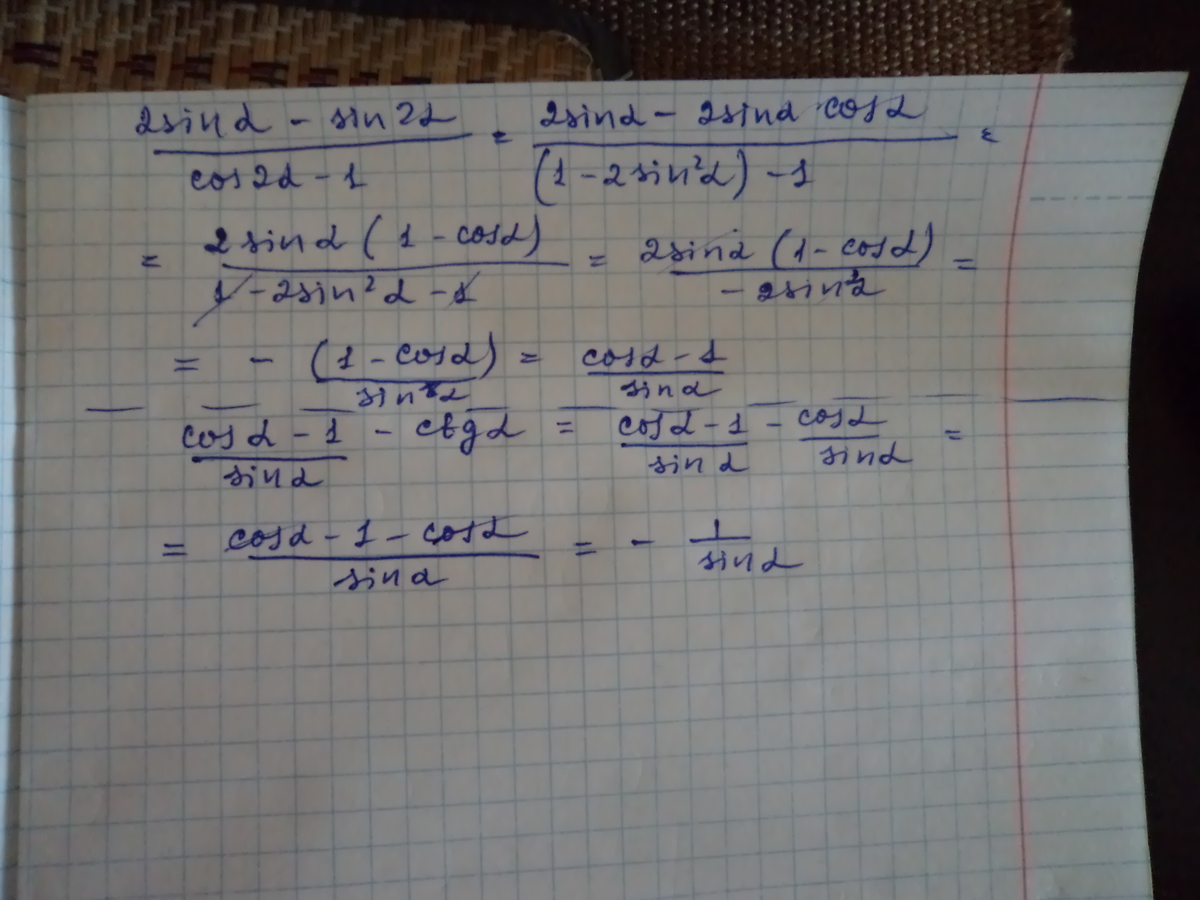 (2sinα - sin2α)/(cos2α - 1) = (2sinα - 2sinα·cosα)/((1 - 2sin²α) - 1) =
= (2sinα(1 - cosα))/(1 - 2sin²α - 1) = (2sinα(1 - cosα))/(-2sin²α) =
= - (1 - cosα)/(sinα) = (cosα - 1)/(sinα)
(cosα - 1)/(sinα) - ctgα = (cosα - 1)/(sinα) - (cosα)/(sinα) =
= (cosα - 1 - cosα)/(sinα) = - 1/(sinα)